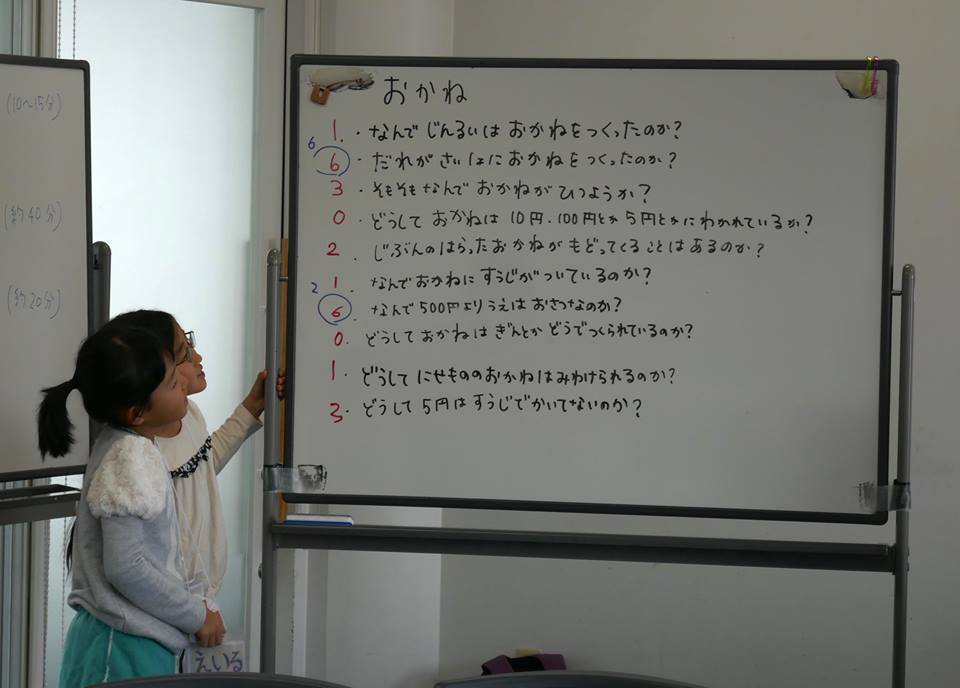 (10〜15分)
(約40分)
(約20分)
おかね
1.・なんで じんるいは おかねをつくったのか?
6 6・だれが さいしょに おかねをつくったのか?
3・そもそもなんで おかねが ひつようか?
0・どうして おかねは 10円・100円とか 5円とかに わかれているか?
2・じぶんのはらったおかねが もどってくることは あるのか?
1・なんでおかねに すうじが ついているのか?
2 6・なんで500円よりうえは おさつなのか?
0・どうしておかねは ぎんとか どうでつくられているのか?
1・どうして にせもののおかねは みわけられるのか?
3・どうして 5円は すうじでかいてないのか?
えいる